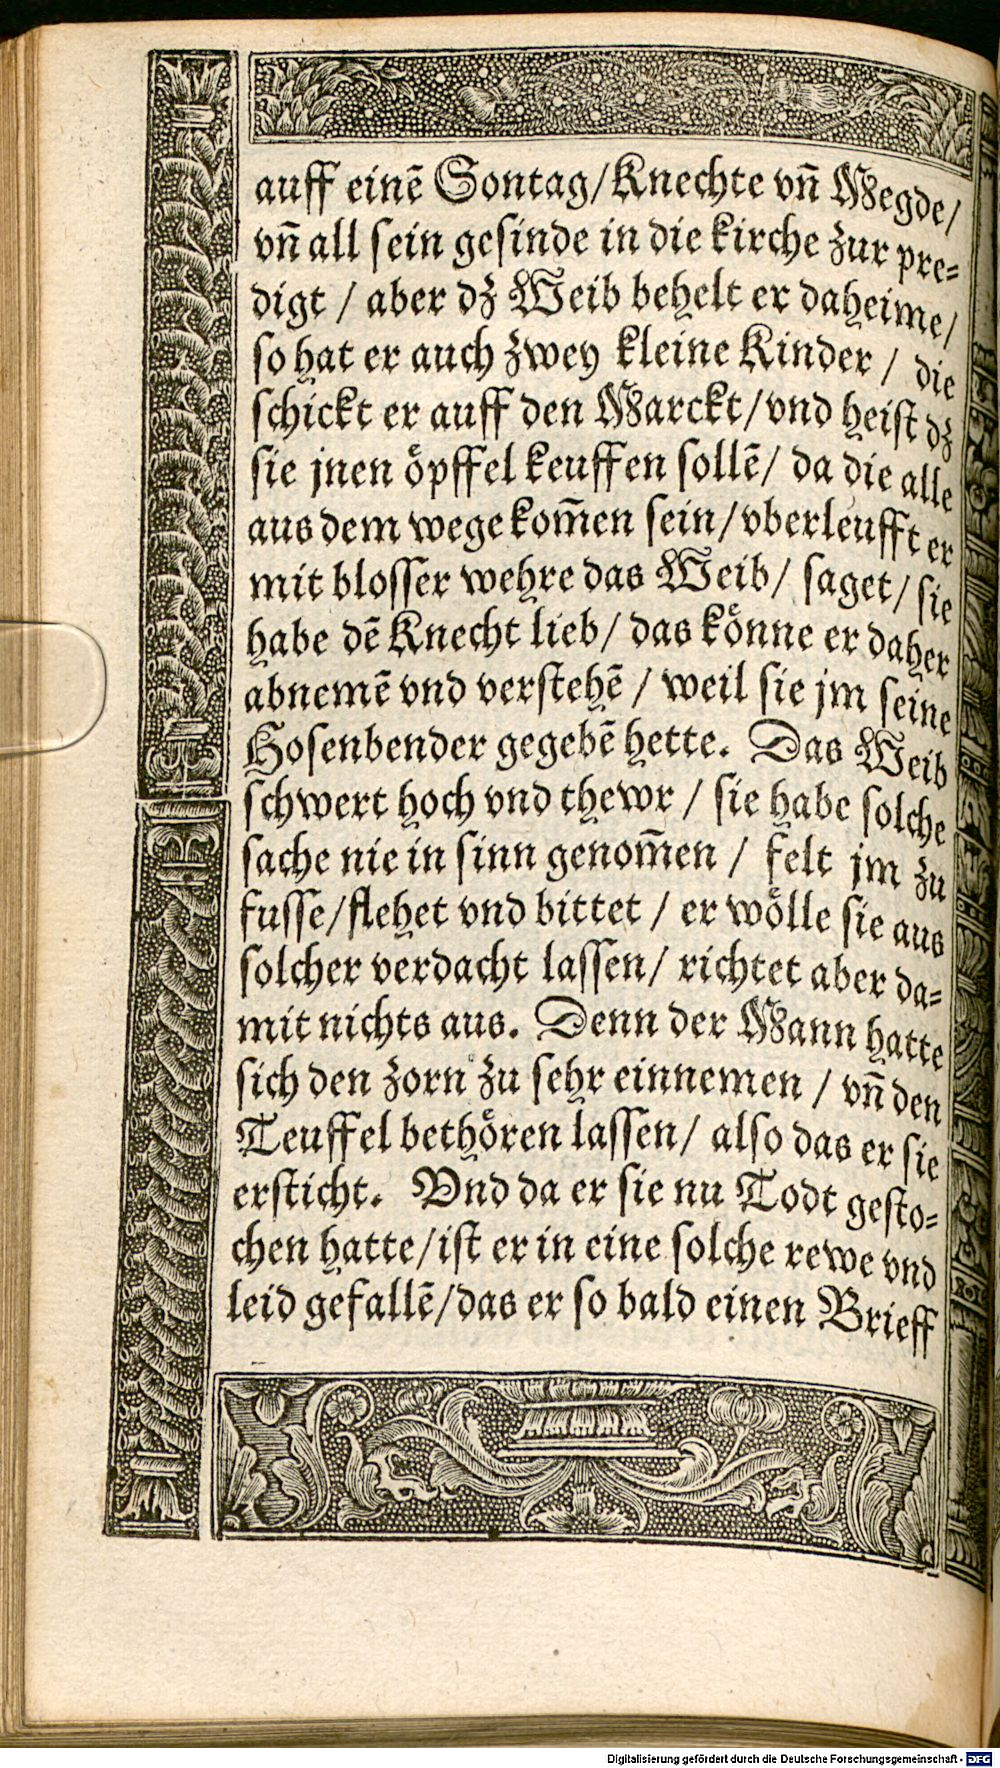 auff einē Sontag/Knechte vn̄ Megde/
vn̄ all sein gesinde in die kirche zur pre-
digt / aber dz Weib behelt er daheime/
so hat er auch zwey kleine Kinder / die
schickt er auff den Marckt/vnd heist dz
sie jnen öpffel keuffen sollē/ da die alle
aus dem wege kom̄en sein/vberleufft er
mit blosser wehre das Weib/ saget/ sie
habe dē Knecht lieb/ das könne er daher
abnemē vnd verstehē / weil sie jm seine
Hosenbender gegebē hette. Das Weib
schwert hoch vnd thewr / sie habe solche
sache nie in sinn genom̄en / felt jm zu
fusse/flehet vnd bittet / er wölle sie aus
solcher verdacht lassen/ richtet aber da-
mit nichts aus. Denn der Mann hatte
sich den zorn zu sehr einnemen / vn̄ den
Teuffel bethören lassen/ also das er sie
ersticht. Vnd da er sie nu Todt gesto-
chen hatte/ist er in eine solche rewe vnd
leid gefallē/das er so bald einen Brieff
Digitalisierung gefördert durch die Deutsche Forschungsgemeinschaft - DFG